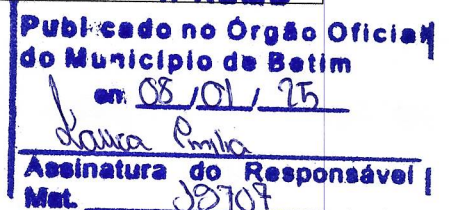 Publicado no Órgão Oficial
do Município de Betim
em 08 / 01 / 25
Laura Emilia
Assinatura do Responsável
Mat.